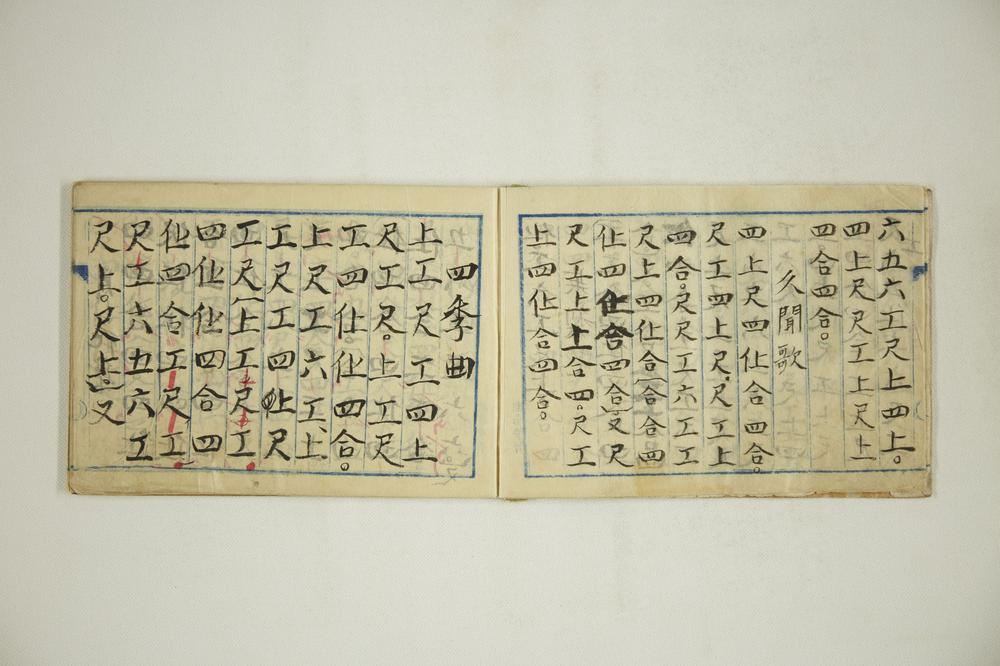 六五六工尺上四上。
四上尺工上尺上
四合四合。
久聞歌
四上尺四仩合四合。
尺工四上尺尺工上
四合。尺尺工六工工
尺上四仩合合合四
仩四仩合四合。又尺
尺工上上合四。尺工
上四仩合四合。
四季曲
上工尺工四上
尺工尺。上工尺
工四仩。仩四合。
上尺工六工、上
工尺工四仩尺
工尺上工尺工
四仩仩四合四
仩四合工尺工
尺工六五六工
尺上。尺上。又